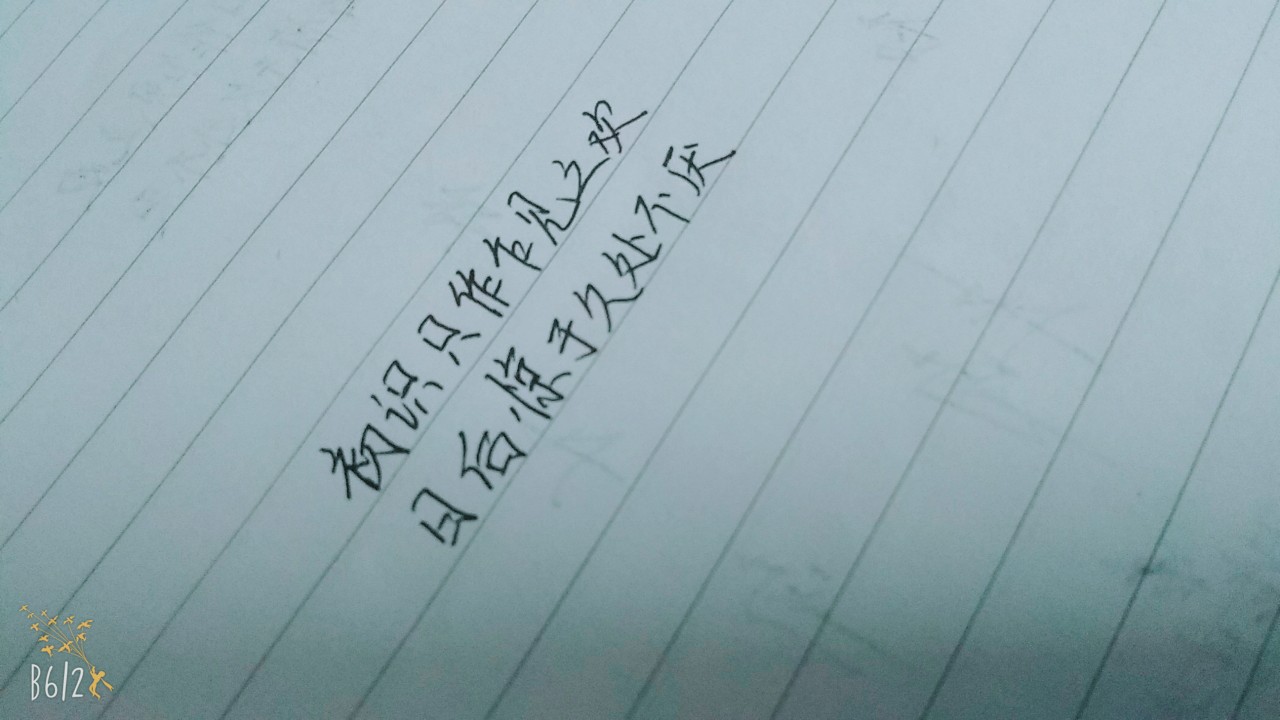 初识只作乍见之欢
日后惊于久处不厌
B612